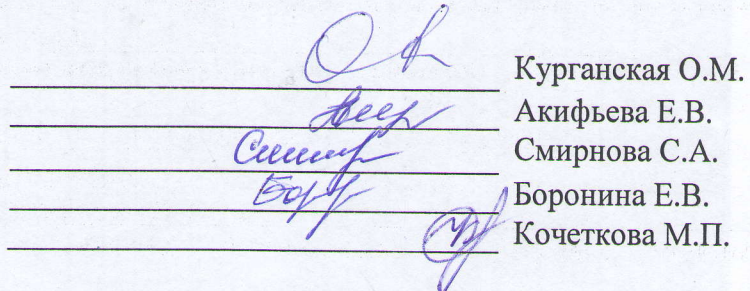 Курганская О.М.
Акифьева Е.В.
Смирнова С.А.
Боронина Е.В.
Кочеткова М.П.